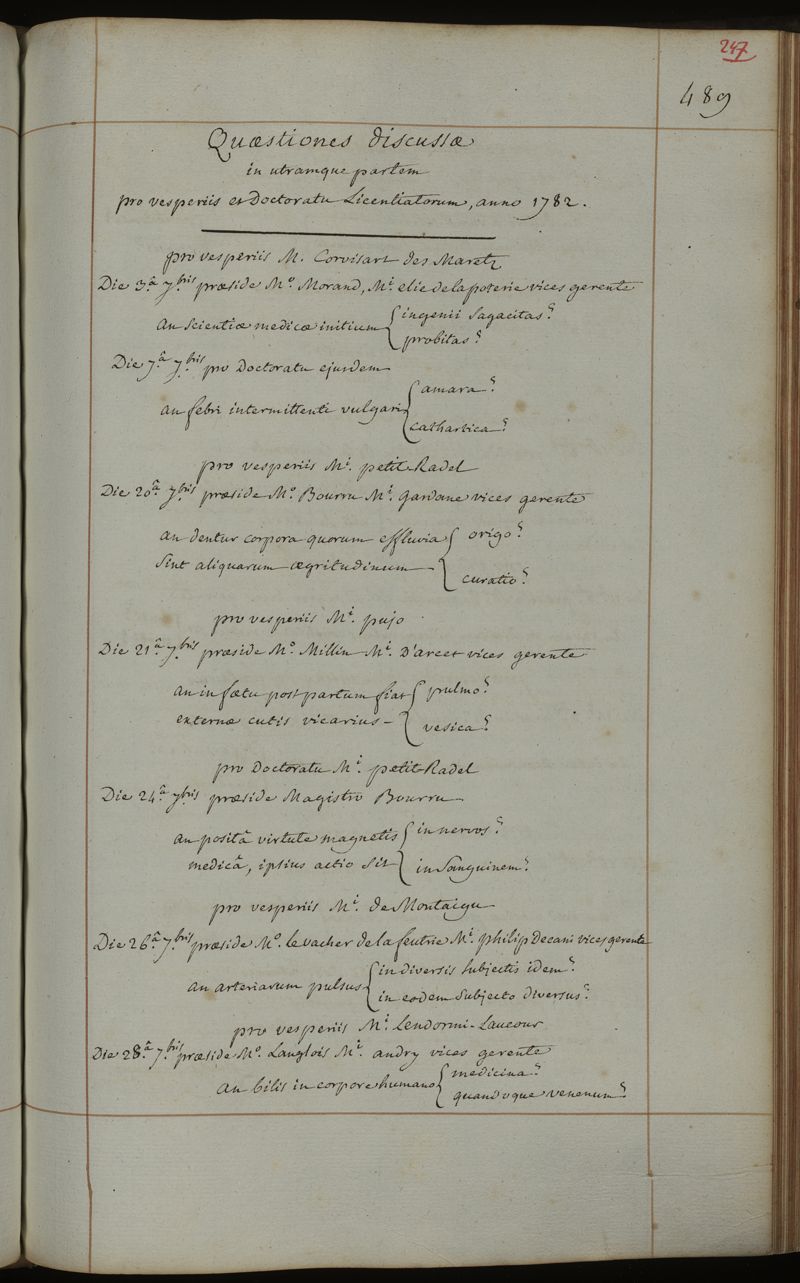 247
489
Quæstiones discussæ
in utramque partem
pro vesperiis et Doctoratu Licentiatorum, anno 1782.
pro vesperiis M. Corvisart des Maretz
Die 3.ª 7.bris præside M.º Morand, M.i elie de la poterie vices gerente
an scientiæ medicæ initium { ingenii sagacitas?
probitas?
Die 7.ª 7.bris pro Doctoratu ejusdem
an febri intermittenti vulgari { amara?
cathartica?
pro vesperiis M.i petit Radel
Die 20.ª 7.bris præside M.º Bourru M.i Gardane vices gerente
an dentur corpora quorum effluvia { origo?
sint aliquarum ægritudinum - curatio?
pro vesperiis M.i pujo
Die 21.ª 7.bris præside M.º Millin M.i D'arcet vices gerente
an in fœtu post partum fiat { pulmo?
externæ cutis vicarius - vesica?
pro Doctoratu M.i petit Radel
Die 24.ª 7.bris præside Magistro Bourru
an positâ virtute magnetis { in nervos?
medicâ, ipsius actio sit in sanguinem?
pro vesperiis M.i de Montaigu
Die 26.ª 7.bris præside M.º levacher de la feutrie M.i philip Decani vices gerente
an arteriarum pulsus { in diversis subjectis idem?
in eodem subjecto diversus?
pro vesperiis M.i Lendormi-Laucour
Die 28.ª 7.bris præside M.º Langlois M.i andry vices gerente
an bilis in corpore humano { medicina?
quandoque venenum?